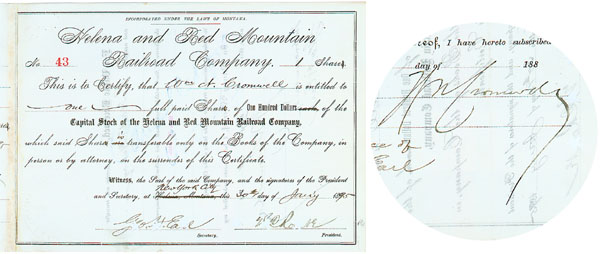 INCORPORATED UNDER THE LAWS OF MONTANA.
Helena and Red Mountain
No. 43 Railroad Company. 1 Shares
This is to Certify, that Wm N. Cromwell is entitled to
one full paid Share of One Hundred Dollars each of the
Capital Stock of the Helena and Red Mountain Railroad Company,
which said Share is transferable only on the Books of the Company, in
person or by attorney, on the surrender of this Certificate.
Witness, the Seal of the said Company, and the signatures of the President
New York City
and Secretary, at Helena, Montana, this 30th day of 1895
Geo. H. Earl
Secretary. President.
reof, I have hereto subscribed
day of 188
Wm N Cromwell
ce of
Earl